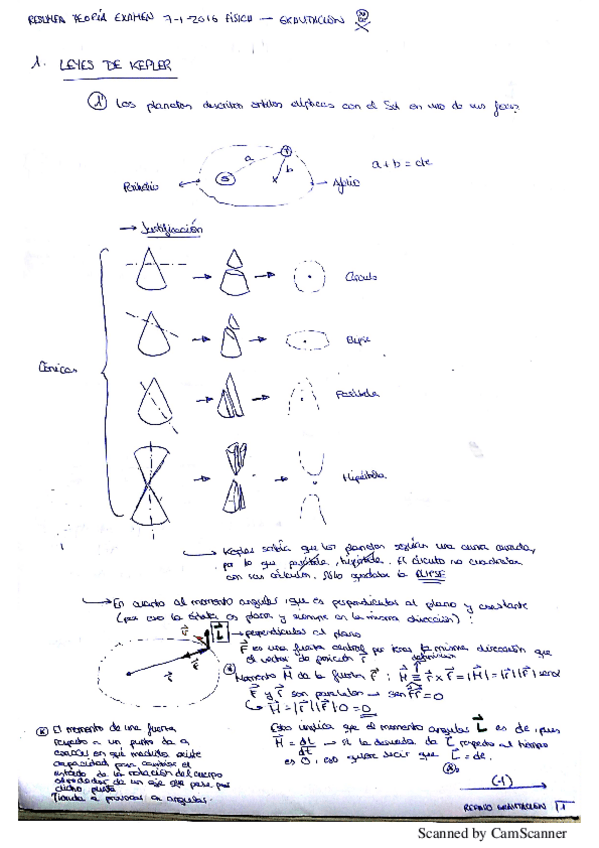 RESUMEN TEORÍA EXAMEN 7-1-2016 FÍSICA — GRAVITACIÓN
1. LEYES DE KEPLER
1ª Los planetas describen órbitas elípticas con el Sol en uno de sus focos
a b a + b = cte
Perihelio Afelio
→ Justificación
Círculo
Elipse
Cónicas
Parábola
Hipérbola
Kepler sabía que los planetas seguían una curva cerrada,
por lo que parábola, hipérbola. El círculo no cuadraba
con sus cálculos. Sólo quedaba la ELIPSE
En cuanto al momento angular, que es perpendicular al plano y constante
(por eso la órbita es plana y siempre en la misma dirección):
L → perpendicular al plano
F es una fuerza central por tener la misma dirección que
el vector de posición r
Momento M de la fuerza F: M = r x F = |M| = |r||F| sen
F y r son paralelos → sen = 0
M = |F||r| 0 = 0
El momento de una fuerza
respecto a un punto da a
conocer en qué medida existe
capacidad para cambiar el
estado de la rotación del cuerpo
alrededor de un eje que pase por
dicho punto.
Tiende a provocar a. angular.
Esto indica que el momento angular L es cte, pues
M = dL/dt → Si la derivada de L respecto al tiempo
es 0, eso quiere decir que L = cte.
(-1)
REPASO GRAVITACIÓN 1
Scanned by CamScanner